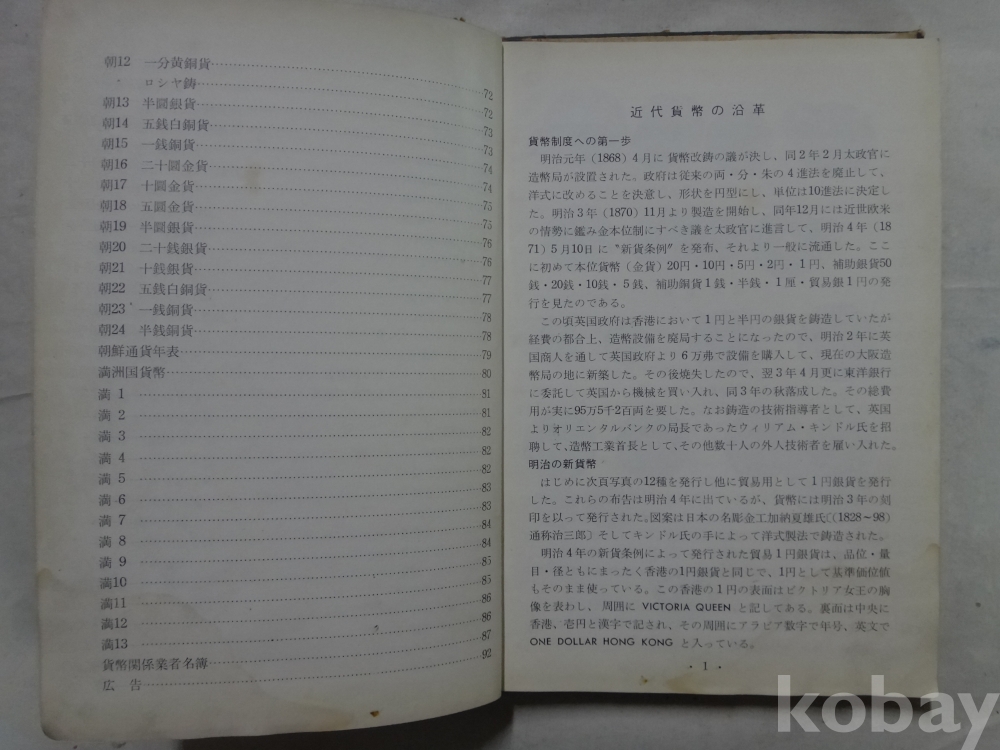 朝12 一分黄銅貨 72
ロシヤ鋳 72
朝13 半圜銀貨 73
朝14 五銭白銅貨 73
朝15 一銭銅貨 74
朝16 二十圜金貨 74
朝17 十圜金貨 75
朝18 五圜金貨 75
朝19 半圜銀貨 76
朝20 二十銭銀貨 76
朝21 十銭銀貨 77
朝22 五銭白銅貨 77
朝23 一銭銅貨 78
朝24 半銭銅貨 78
朝鮮通貨年表 79
満洲国貨幣 80
満 1 81
満 2 81
満 3 82
満 4 82
満 5 82
満 6 83
満 7 83
満 8 84
満 9 84
満10 85
満11 85
満12 86
満13 86
貨幣関係業者名簿 87
広 告 92
近代貨幣の沿革
貨幣制度への第一歩
明治元年(1868)4月に貨幣改鋳の議が決し、同2年2月太政官に
造幣局が設置された。政府は従来の両・分・朱の4進法を廃止して、
洋式に改めることを決意し、形状を円型にし、単位は10進法に決定し
た。明治3年(1870)11月より製造を開始し、同年12月には近世欧米
の情勢に鑑み金本位制にすべき議を太政官に進言して、明治4年(18
71)5月10日に〝新貨条例〟を発布、それより一般に流通した。ここ
に初めて本位貨幣(金貨)20円・10円・5円・2円・1円、補助銀貨50
銭・20銭・10銭・5銭、補助銅貨1銭・半銭・1厘・貿易銀1円の発
行を見たのである。
この頃英国政府は香港において1円と半円の銀貨を鋳造していたが
経費の都合上、造幣設備を廃局することになったので、明治2年に英
国商人を通して英国政府より6万弗で設備を購入して、現在の大阪造
幣局の地に新築した。その後焼失したので、翌3年4月更に東洋銀行
に委託して英国から機械を買い入れ、同3年の秋落成した。その総費
用が実に95万5千2百両を要した。なお鋳造の技術指導者として、英国
よりオリエンタルバンクの局長であったウィリアム・キンドル氏を招
聘して、造幣工業首長として、その他数十人の外人技術者を雇い入れた。
明治の新貨幣
はじめに次頁写真の12種を発行し他に貿易用として1円銀貨を発行
した。これらの布告は明治4年に出ているが、貨幣には明治3年の刻
印を以って発行された。図案は日本の名彫金工加納夏雄氏〔(1828〜98)
通称治三郎〕そしてキンドル氏の手によって洋式製法で鋳造された。
明治4年の新貨条例によって発行された貿易1円銀貨は、品位・量
目・径ともにまったく香港の1円銀貨と同じで、1円として基準価位値
もそのまま使っている。この香港の1円の表面はビクトリア女王の胸
像を表わし、周囲に VICTORIA QUEEN と記してある。裏面は中央に
香港、壱円と漢字で記され、その周囲にアラビア数字で年号、英文で
ONE DOLLAR HONG KONG と入っている。
・1・
kobay